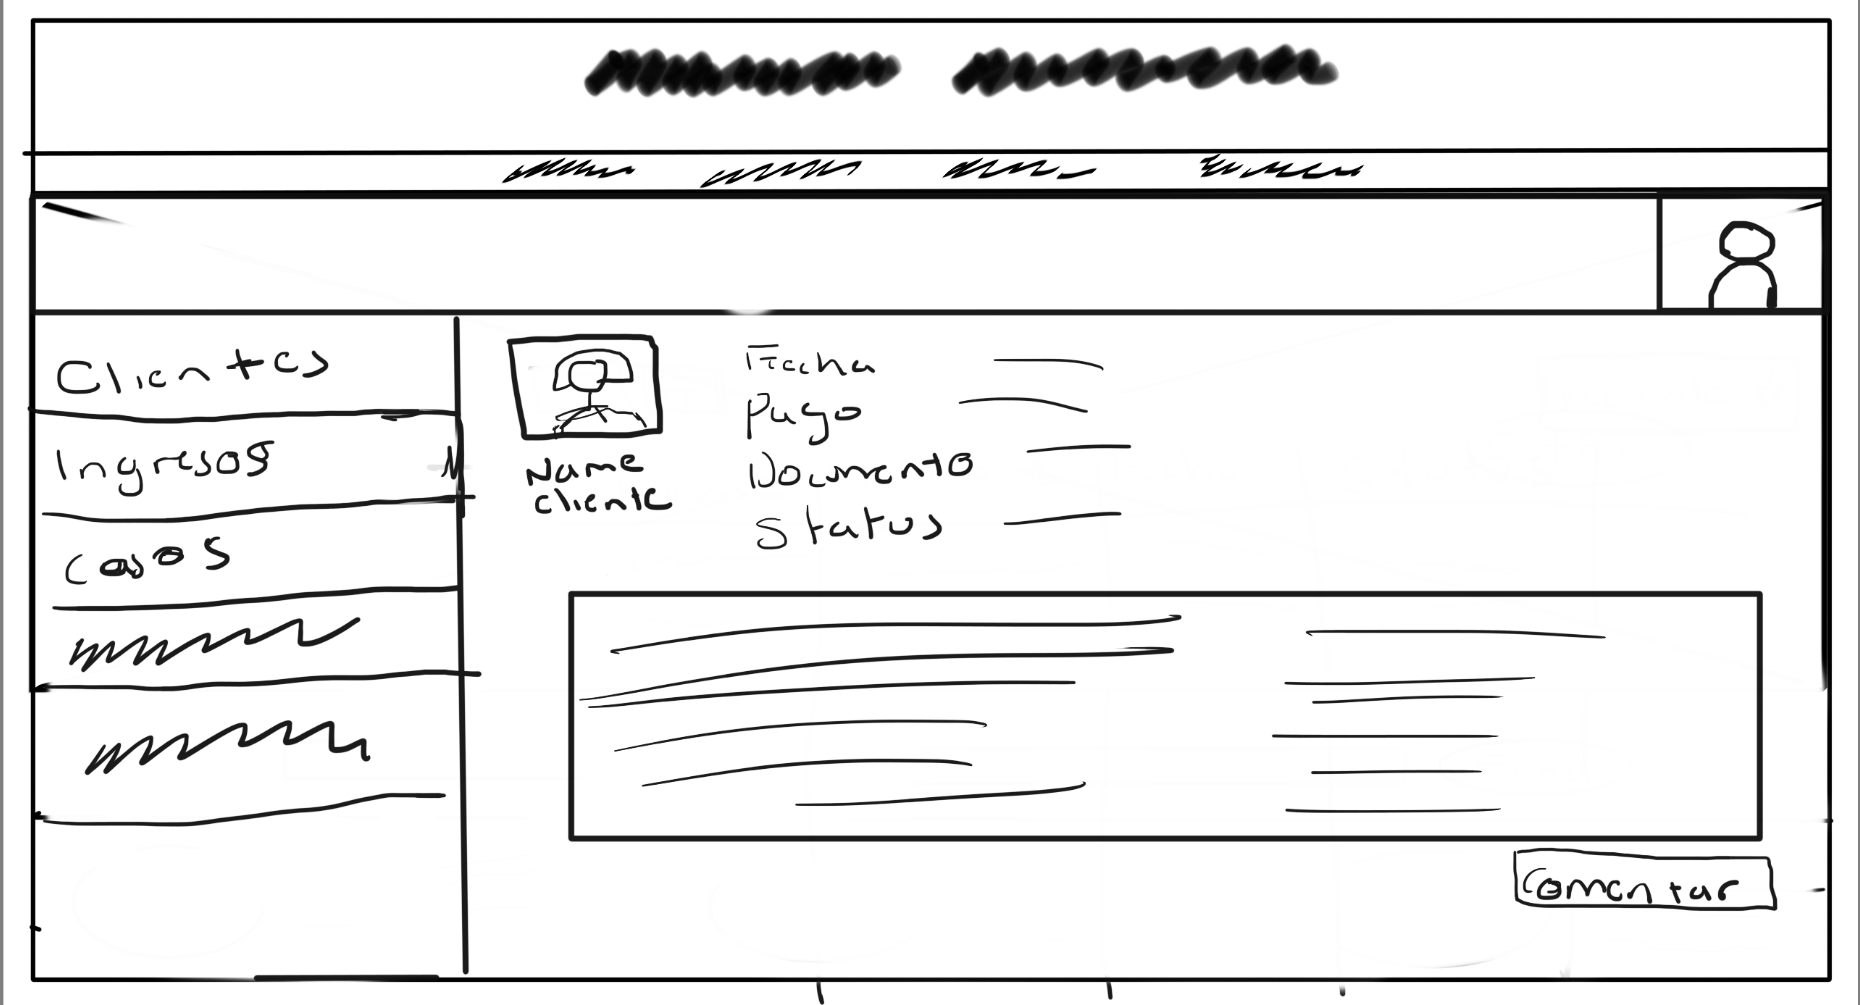 Clientes
Ingresos
Casos
Name
cliente
Fecha
Pago
Documento
Status
Comentar